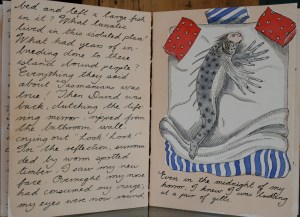 bed and left a large fish
in it? What lunatic
lived in this isolated place?
What had years of in-
breeding done to these
island bound people?
Everything they said
about Tasmanians was
true! Then David was
back, clutching the life
ring mirror ripped from
the bathroom wall,
crying out 'Look! Look!'
In the reflection, surroun
ded by worm spotted
timber I saw my new
face. Overnight my nose
had consumed my visage,
my eyes were now round,
Even in the midnight of my
horror, I knew I was looking
at a pair of gills.